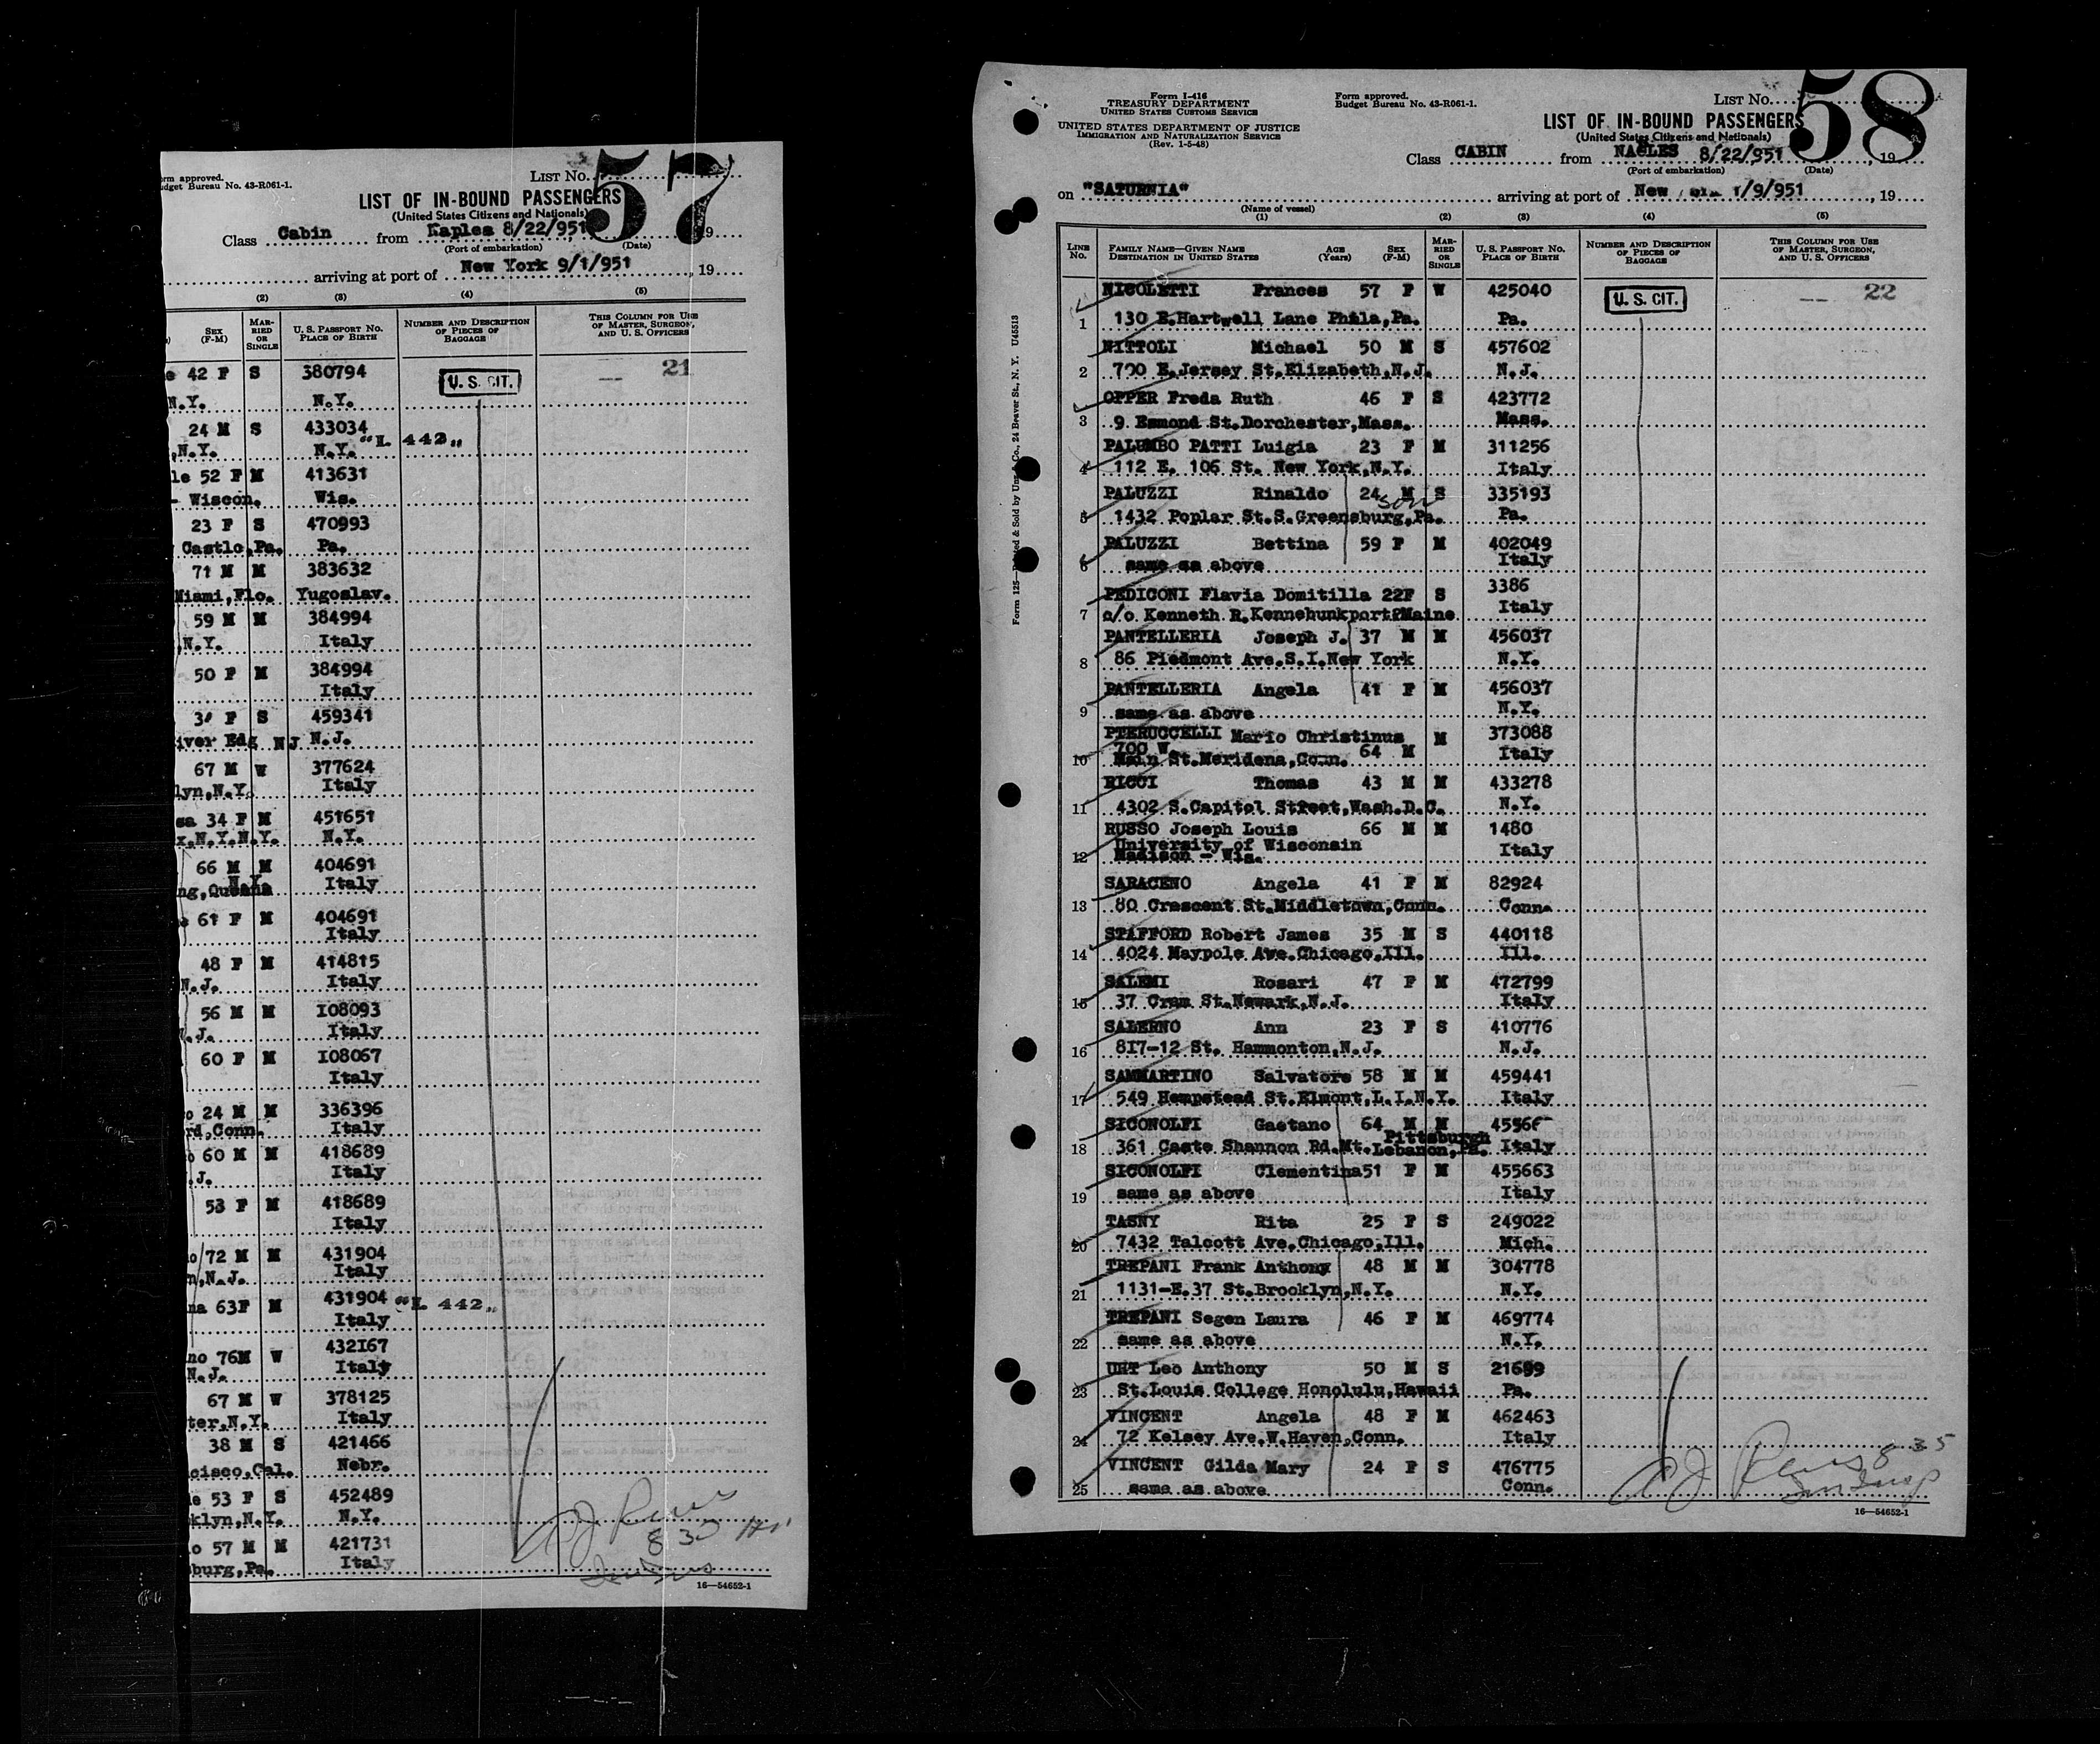 orm approved.
udget Bureau No. 43-R061-1.
LIST No. 57
LIST OF IN-BOUND PASSENGERS
(United States Citizens and Nationals)
Class Cabin from Naples 8/22/951, 19
(Port of embarkation) (Date)
arriving at port of New York 9/1/951, 19
(2) (3) (4) (5)
SEX (F-M) MARRIED OR SINGLE U. S. PASSPORT NO. PLACE OF BIRTH NUMBER AND DESCRIPTION OF PIECES OF BAGGAGE THIS COLUMN FOR USE OF MASTER, SURGEON, AND U. S. OFFICERS
e 42 F S 380794 U. S. CIT. — 21
N.Y. N.Y.
24 M S 433034
,N.Y. N.Y. "L. 442"
le 52 F M 413631
- Wiscon. Wis.
23 F S 470993
Castle,Pa. Pa.
71 M M 383632
Miami,Flo. Yugoslav.
59 M M 384994
,N.Y. Italy
50 F M 384994
Italy
F S 459341
iver Edg NJ N.J.
67 M W 377624
lyn,N.Y. Italy
sa 34 F M 451651
x.N.Y.N.Y. N.Y.
66 M M 404691
ng,Queens N.Y. Italy
e 61 F M 404691
Italy
48 F M 414815
N.J. Italy
56 M M I08093
.J. Italy
60 F M I08067
Italy
o 24 M M 336396
rd,Conn. Italy
o 60 M M 418689
.J. Italy
53 F M 418689
Italy
o 72 M M 431904
n,N.J. Italy
na 63F M 431904 "L. 442"
Italy
no 76M W 432I67
N.J. Italy
67 M W 378125
ter,N.Y. Italy
38 M S 421466
cisco,Cal. Nebr.
le 53 F S 452489
klyn,N.Y. N.Y.
o 57 M M 421731
burg,Pa. Italy
8 30
16—54652-1
Form I-416
TREASURY DEPARTMENT
UNITED STATES CUSTOMS SERVICE
UNITED STATES DEPARTMENT OF JUSTICE
IMMIGRATION AND NATURALIZATION SERVICE
(Rev. 1-5-48)
Form approved.
Budget Bureau No. 43-R061-1.
LIST No. 58
LIST OF IN-BOUND PASSENGERS
(United States Citizens and Nationals)
Class CABIN from NAPLES 8/22/951, 19
(Port of embarkation) (Date)
on "SATURNIA" arriving at port of New 1/9/951, 19
(Name of vessel)
(1) (2) (3) (4) (5)
LINE No. FAMILY NAME—GIVEN NAME DESTINATION IN UNITED STATES AGE (Years) SEX (F-M) MARRIED OR SINGLE U. S. PASSPORT NO. PLACE OF BIRTH NUMBER AND DESCRIPTION OF PIECES OF BAGGAGE THIS COLUMN FOR USE OF MASTER, SURGEON, AND U. S. OFFICERS
NICOLETTI Frances 57 F W 425040 U. S. CIT. — 22
1 130 E.Hartwell Lane Phila,Pa. Pa.
NITTOLI Michael 50 M S 457602
2 700 E.Jersey St.Elizabeth,N.J. N.J.
OPPER Freda Ruth 46 F S 423772
3 9 Esmond St.Dorchester,Mass. Mass.
PALUMBO PATTI Luigia 23 F M 311256
4 112 E. 106 St. New York,N.Y. Italy
PALUZZI Rinaldo 24 M S 335193
son
5 1432 Poplar St.S.Greensburg,Pa. Pa.
PALUZZI Bettina 59 F M 402049
6 same as above Italy
PEDICONI Flavia Domitilla 22F S 3386
7 c/o Kenneth R.Kennebunkport Maine Italy
PANTELLERIA Joseph J. 37 M M 456037
8 86 Piedmont Ave.S.I.New York N.Y.
PANTELLERIA Angela 41 F M 456037
9 same as above N.Y.
PIERUCCELLI Mario Christinus M 373088
10 700 W. Main St.Meridena,Conn. 64 M Italy
RICCI Thomas 43 M M 433278
11 4302 S.Capitol Street,Wash.D.C. N.Y.
RUSSO Joseph Louis 66 M M 1480
University of Wisconsin Italy
12 Madison - Wis.
SARACENO Angela 41 F M 82924
13 80 Crescent St.Middletown,Conn. Conn.
STAFFORD Robert James 35 M S 440118
14 4024 Maypole Ave.Chicago.Ill. Ill.
SALEMI Rosari 47 F M 472799
15 37 Cram St.Newark,N.J. Italy
SALERNO Ann 23 F S 410776
16 8I7-12 St. Hammonton,N.J. N.J.
SAMMARTINO Salvatore 58 M M 459441
17 549 Hempstead St.Elmont,L.I.N.Y. Italy
SICONOLFI Gaetano 64 M M 45566
18 361 Caste Shannon Rd.Mt. Lebanon, Pittsburgh Pa. Italy
SICONOLFI Clementina51 F M 455663
19 same as above Italy
TASNY Rita 25 F S 249022
20 7432 Talcott Ave.Chicago,Ill. Mich.
TREPANI Frank Anthony 48 M M 304778
21 1131-E.37 St.Brooklyn,N.Y. N.Y.
TREPANI Segen Laura 46 F M 469774
22 same as above N.Y.
UHT Leo Anthony 50 M S 21699
23 St.Louis College Honolulu,Hawaii Pa.
VINCENT Angela 48 F M 462463
24 72 Kelsey Ave.W.Haven,Conn. Italy
VINCENT Gilda Mary 24 F S 476775
25 same as above Conn.
8 35
16—54652-1
Form 125— & Sold by Co., 24 Beaver St., N. Y. U45513